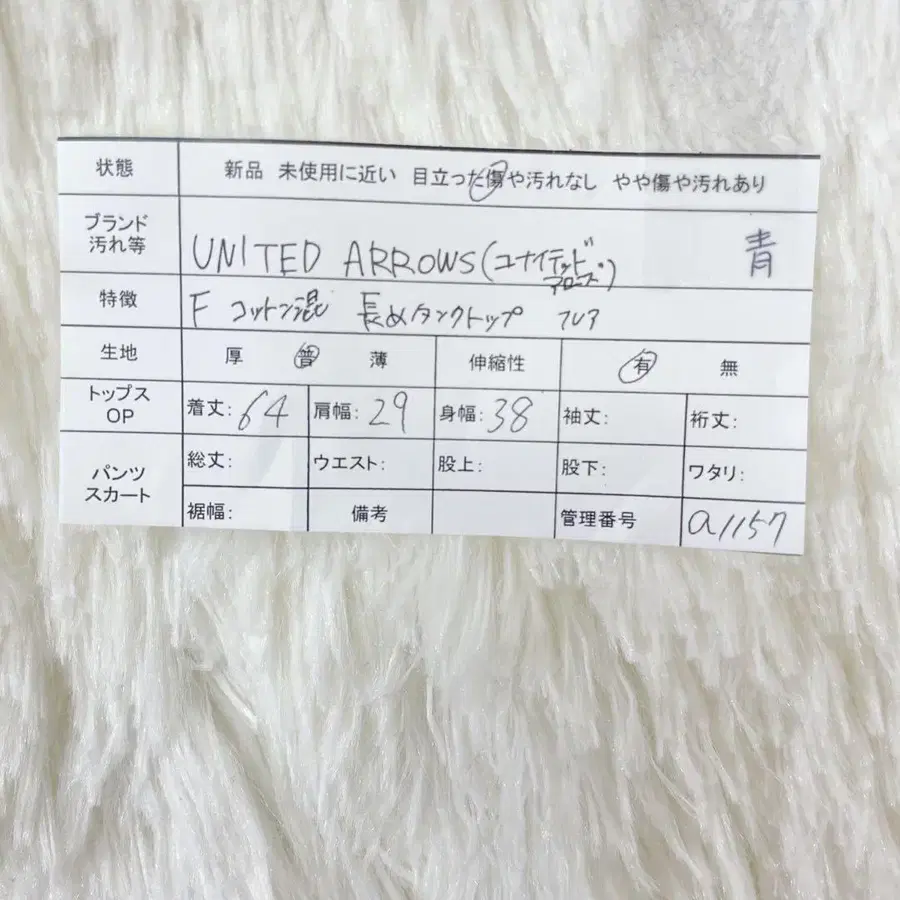 状態 新品 未使用に近い 目立った傷や汚れなし やや傷や汚れあり
ブランド
汚れ等
UNITED ARROWS(ユナイテッド・
アローズ)
青
特徴 F コットン混 長めタンクトップ フレア
生地 厚 普 薄 伸縮性 有 無
トップス
OP
着丈: 64 肩幅: 29 身幅: 38 袖丈: 裄丈:
パンツ
スカート
総丈: ウエスト: 股上: 股下: ワタリ:
裾幅: 備考 管理番号 a1157